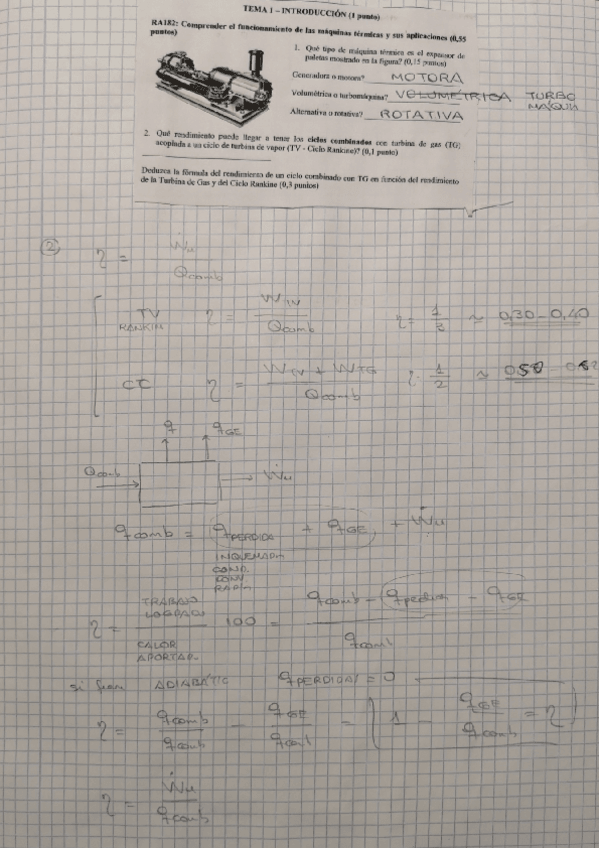 TEMA 1 – INTRODUCCIÓN (1 punto)
RA182: Comprender el funcionamiento de las máquinas térmicas y sus aplicaciones (0,55
puntos)
1. Qué tipo de máquina térmica es el expansor de
paletas mostrado en la figura? (0,15 puntos)
Generadora o motora? MOTORA
Volumétrica o turbomáquina? VOLUMÉTRICA TURBO
MÁQUI
Alternativa o rotativa? ROTATIVA
2. Qué rendimiento puede llegar a tener los ciclos combinados con turbina de gas (TG)
acoplada a un ciclo de turbina de vapor (TV - Ciclo Rankine)? (0,1 punto)
Deduzca la fórmula del rendimiento de un ciclo combinado con TG en función del rendimiento
de la Turbina de Gas y del Ciclo Rankine (0,3 puntos)
② η = Ẇu / Qcomb
TV RANKIN η = WTV / Qcomb η = 1/3 ≈ 0,30 - 0,40
CC η = WTV + WTG / Qcomb η 1/2 ≈
q qGE
Qcomb Ẇu
qcomb = qPERDIDA + qGE + Ẇu
INQUEMADOS
COND.
CONV
RADIA
η = TRABAJO LOGRADO / CALOR APORTAD. 100 = qcomb - (qperdida - qGE / qcomb
si fuera ADIABÁTIC qPERDIDAS = 0
η = qcomb / qcomb - qGE / qcomb = [ 1 - qGE / qcomb = η ]
η = Ẇu / qcomb